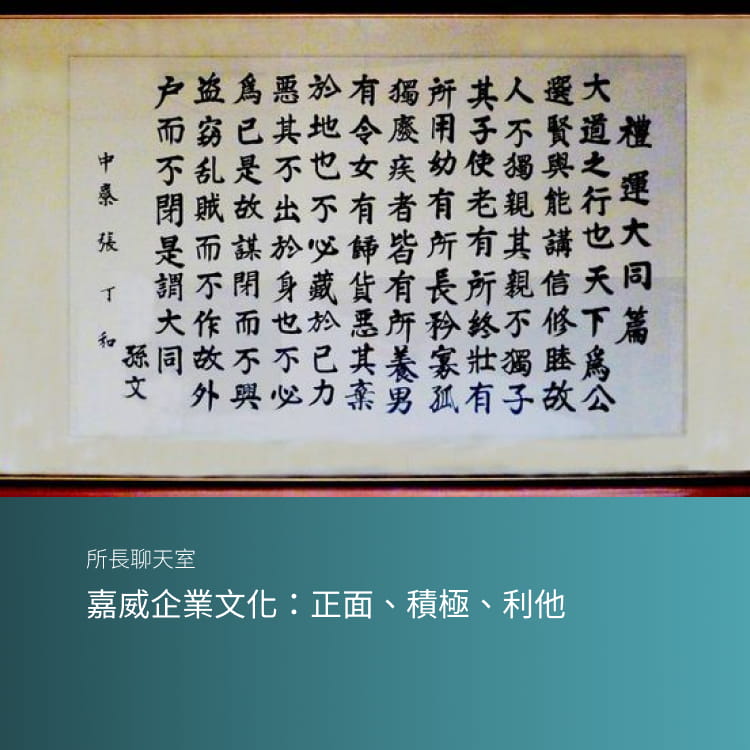 禮運大同篇
大道之行也天下爲公
選賢與能講信修睦故
人不獨親其親不獨子
其子使老有所終壯有
所用幼有所長矜寡孤
獨廢疾者皆有所養男
有令女有歸貨惡其棄
於地也不必藏於己力
惡其不出於身也不必
爲己是故謀閉而不興
盗窃乱賊而不作故外
户而不閉是謂大同
孫文
張丁和
所長聊天室
嘉威企業文化：正面、積極、利他